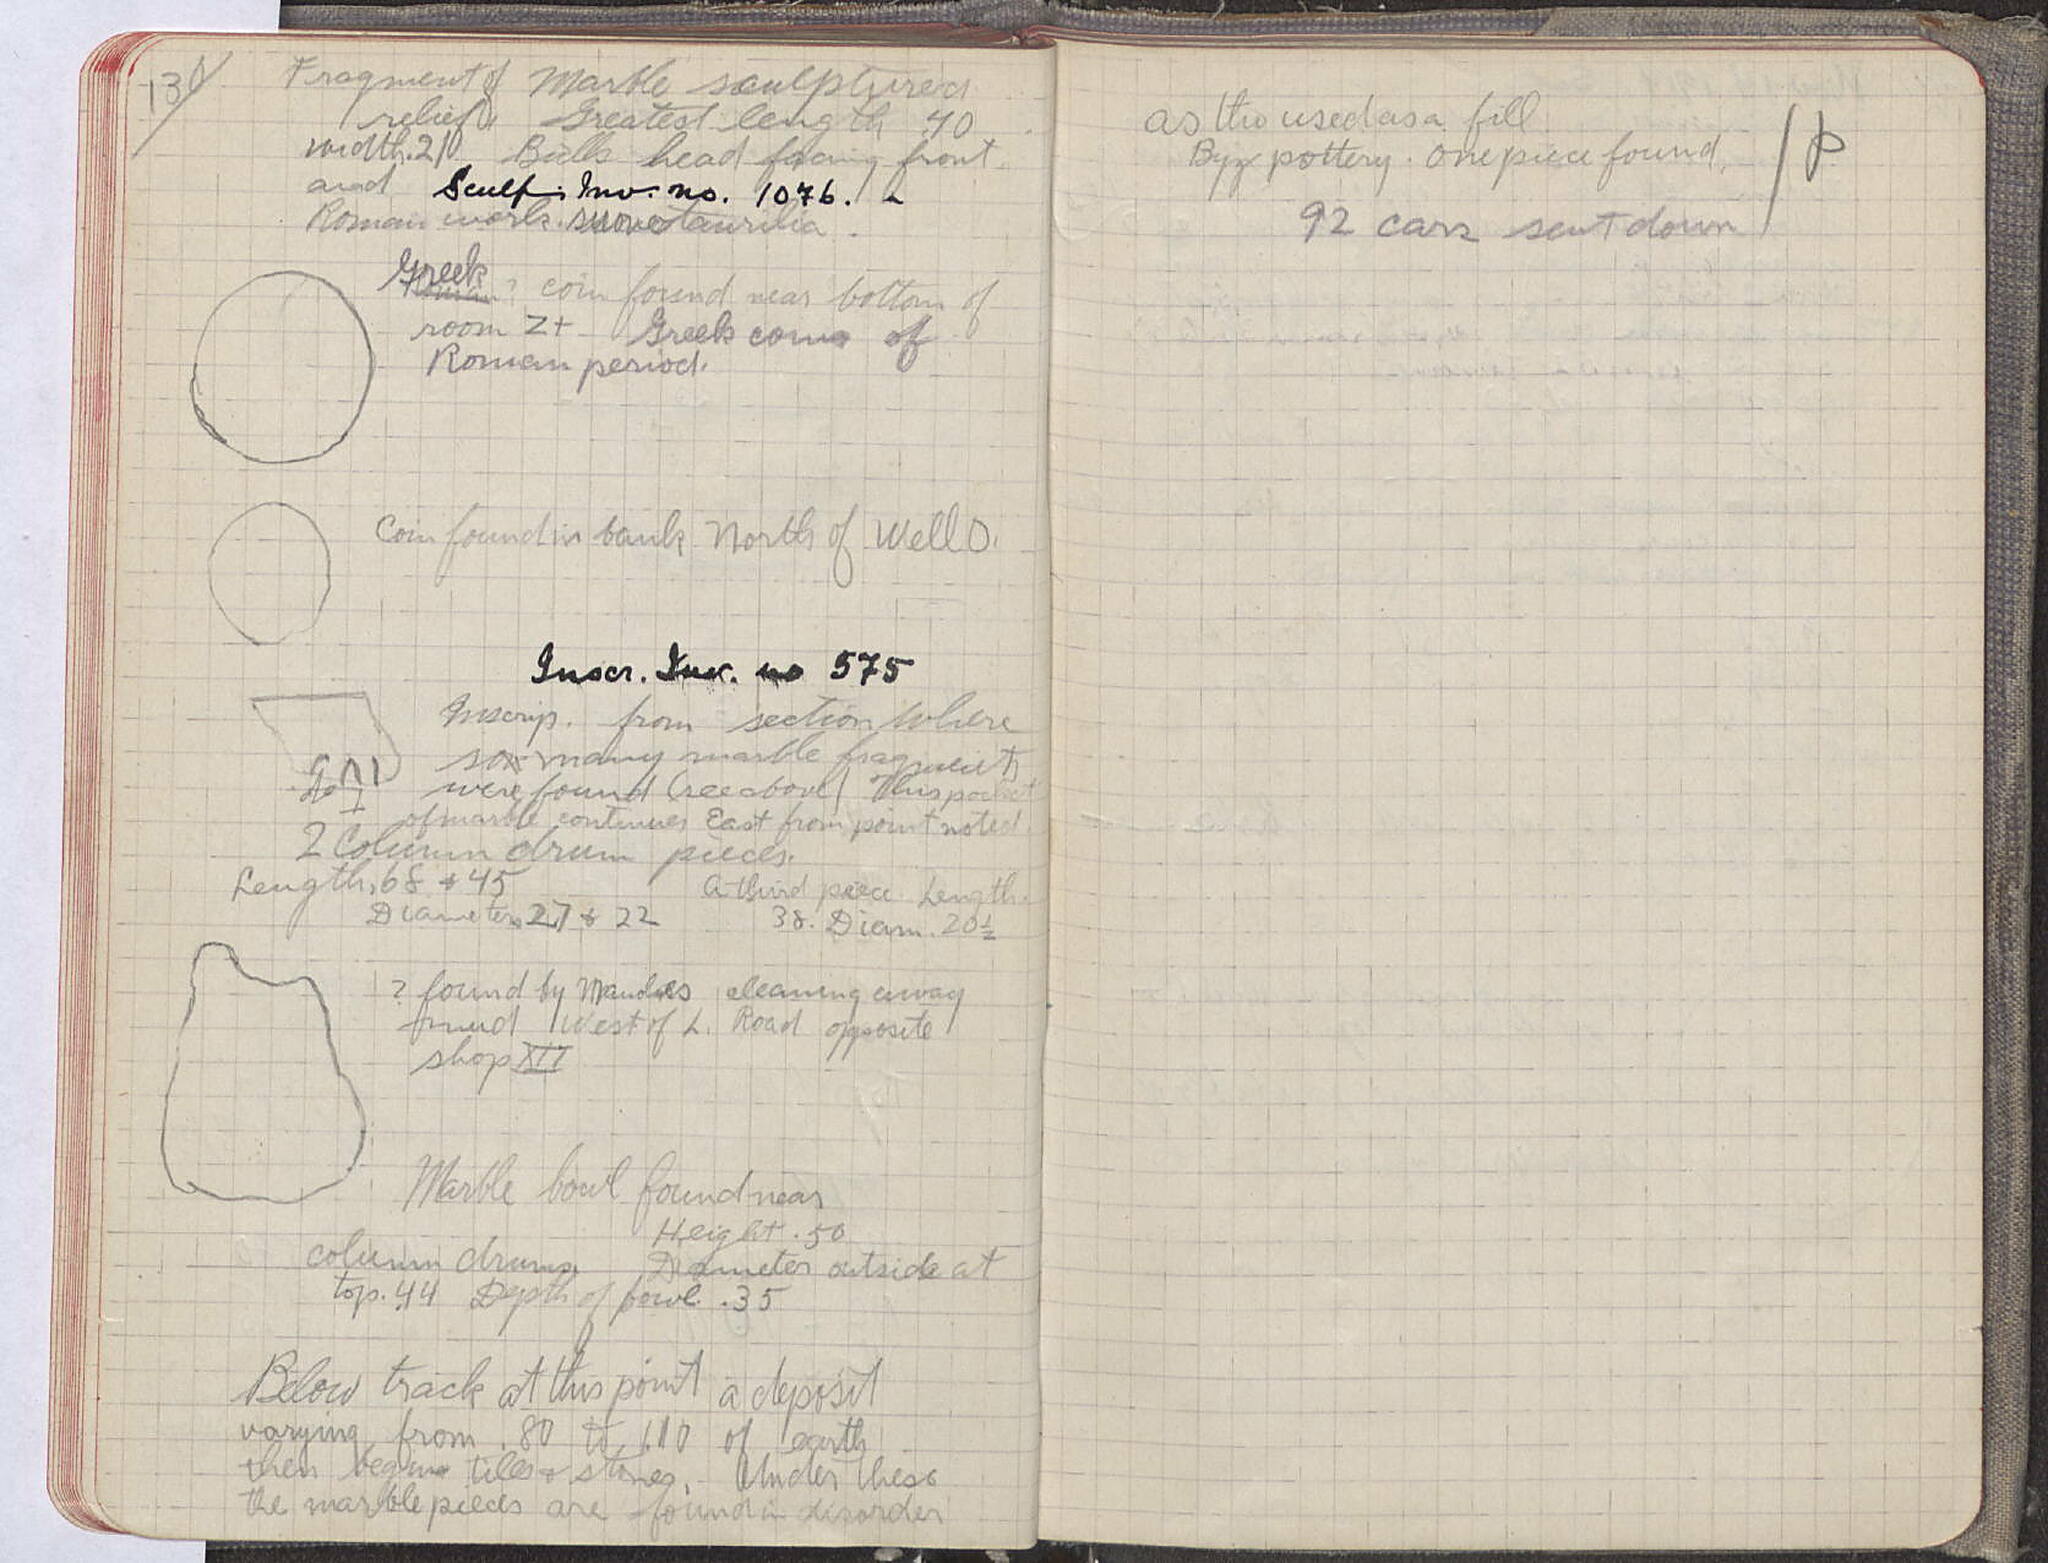 130
Fragment of Marble sculptured
relief. Greatest length .40
width .210 Bulls head facing front
and Sculp. Inv. no. 1076.
Roman work. suovetaurilia.
Greek
Roman? coin found near bottom of
room Z+ Greek coin of
Roman period.
Coin found in bank North of Well O.
Inscr. Inv. no 575
Inscrip. from section where
so many marble fragments
were found (see above) This pocket
of marble continues East from point noted
2 Column drum pieces.
Length .68 + 45
A third piece Length.
Diameter .27 + 22
38. Diam. 20½
? found by cleaning away
mud West of L. Road opposite
shop XII
Marble bowl found near
Height .50
column drums. Diameter outside at
top .44 Depth of bowl .35
Below track at this point a deposit
varying from .80 to 1.10 of earth
then began tiles + stones. Under these
the marble pieces are found in disorder
as tho used as a fill
Byz pottery. One piece found.
92 cars sent down